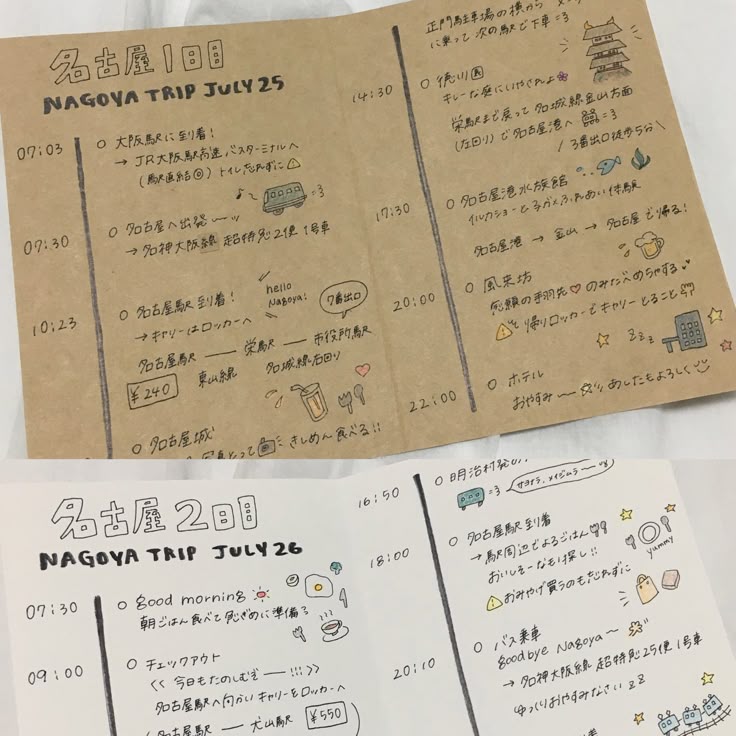 名古屋1日目
NAGOYA TRIP JULY 25
07:03
○ 大阪駅に到着!
→ JR大阪駅高速バスターミナルへ
(駅直結◎) トイレ忘れずに⚠
07:30
○ 名古屋へ出発〜ッ
→ 名神大阪線 超特急2便 1号車
10:23
○ 名古屋駅到着!
hello
Nagoya!
7番出口
→キャリーはロッカーへ
名古屋駅 — 栄駅 — 市役所駅
¥240
東山線
名城線右回り
○ 名古屋城
写真とって
きしめん食べる!!
正門駐車場の横から
に乗って次の駅で下車=3
14:30
○ 徳川園
キレーな庭にいやされよ
栄駅まで戻って名城線金山方面
(左回り)で名古屋港へ =3
3番出口徒歩5分
17:30
○ 名古屋港水族館
イルカショーとうみがめふれあい体験
名古屋港 → 金山 → 名古屋で帰る!
20:00
○ 風来坊
念願の手羽先♡のみたべめちゃする
⚠ 帰りロッカーでキャリーとること
zzz
22:00
○ ホテル
おやすみ〜 あしたもよろしく
名古屋2日目
NAGOYA TRIP JULY 26
07:30
○ good morning
朝ごはん食べて急ぎめに準備
09:00
○ チェックアウト
<< 今日もたのしむぞー!!! >>
名古屋駅へ向かいキャリーをロッカーへ
(名古屋駅 — 犬山駅
¥550
16:50
○ 明治村発
=3
サヨナラ、メイジムラ〜
18:00
○ 名古屋駅到着
→ 駅周辺でよるごはん
おいしそーなもの探し!!
yummy
⚠ おみやげ買うのもわすれずに
20:10
○ バス乗車
goodbye Nagoya〜
→ 名神大阪線 超特急25便 1号車
ゆっくりおやすみなさい zz